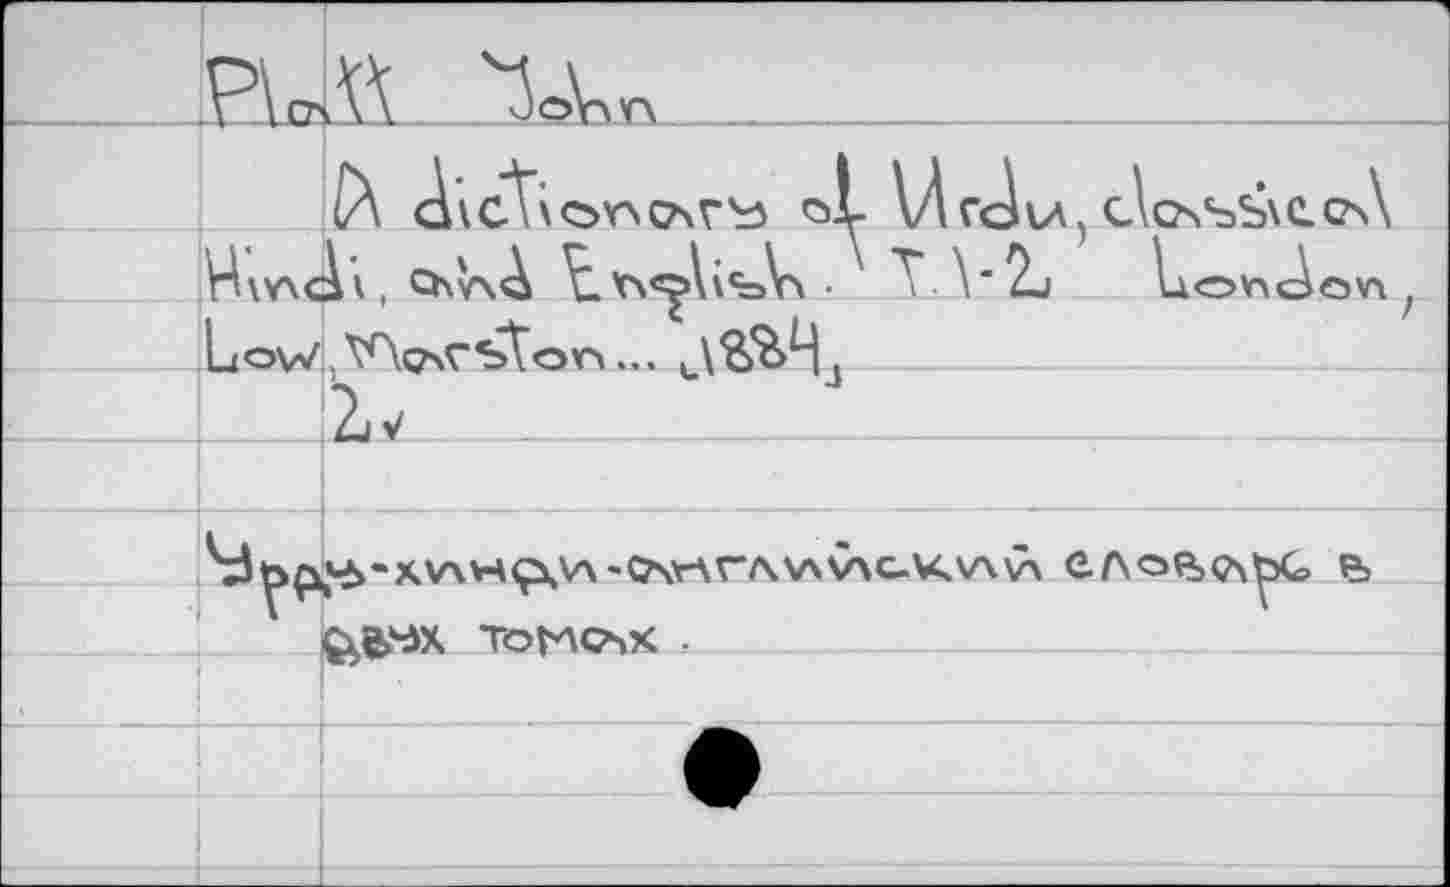 Platt John
A dictionary of Urdu, classical
Hindi, and English. T. 1-2 London,
Low, Marston... 1884,
2 v
Урду-хинди-английский словарь в
двух томах.